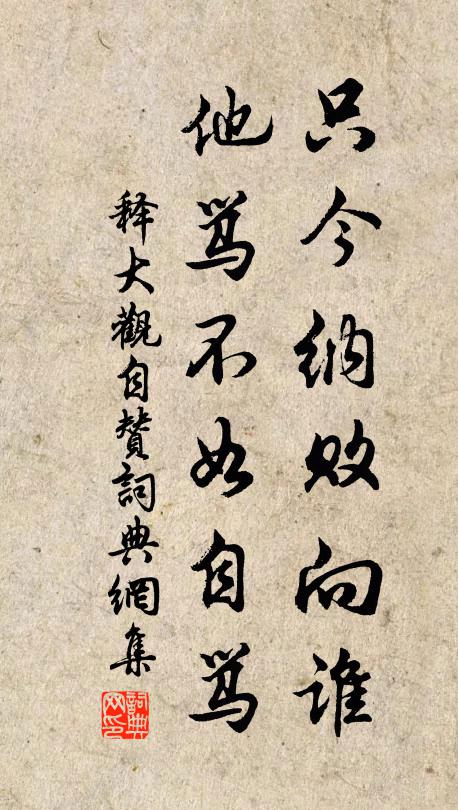 只今纳败向谁
他骂不如自骂
释大觀自赞詞典網集
詞典网印